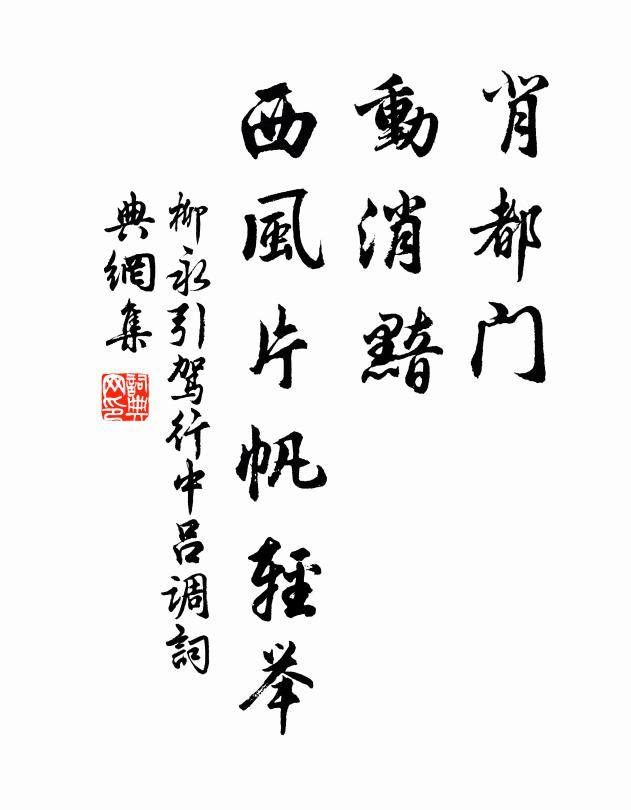 背都门
動消黯
西風片帆輕举
柳永引駕行中吕调詞
典網集
詞典
网印